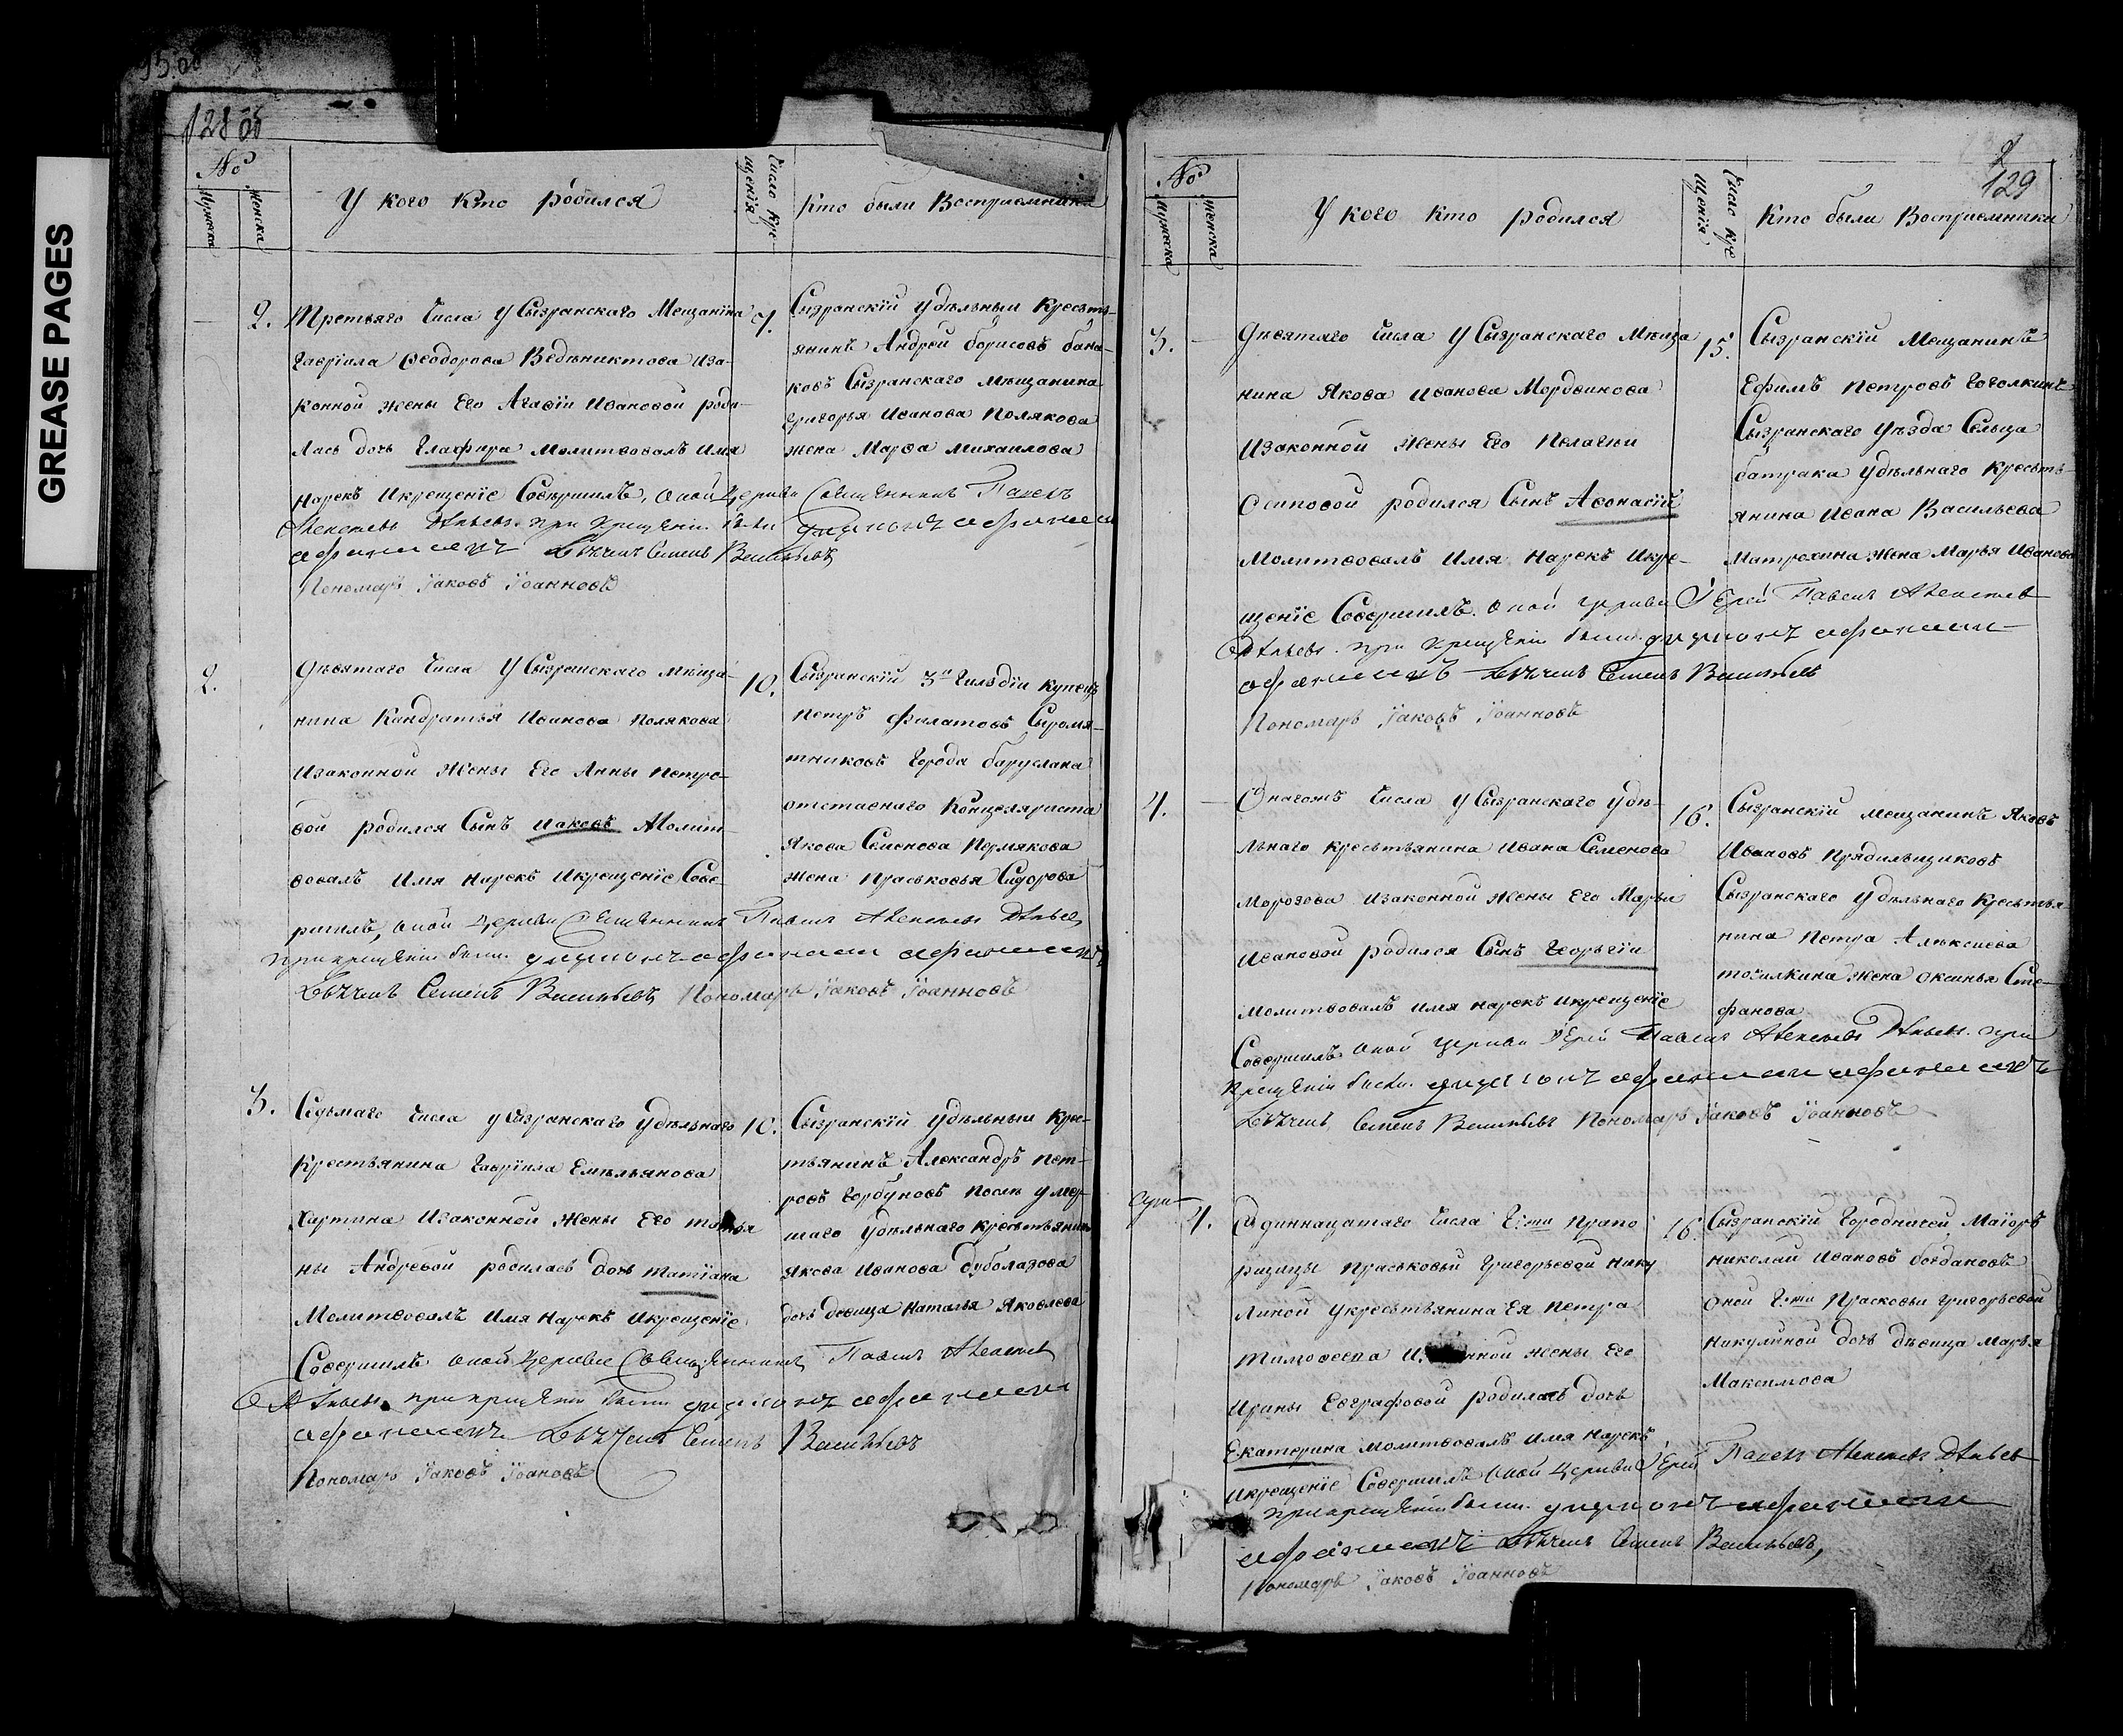 GREASE PAGES
128
No
Мужеска
Женска
У кого кто родился
Число крещенія
Кто были Восприемники
2. Третьяго числа у Сызранскаго Мещанина
Гавріила Феодорова Ведѣниктова иза-
конной жены Его Агафіи Ивановой роди-
лась дочь Глафира Молитвовалъ имя
нарекъ Икрещеніе Совѣршилъ, оной Церкви Священникъ Павелъ
Алексѣевъ при крещеніи были
Семенъ Васильевъ
Пономарь Іаковъ Іоанновъ
7.
Сызранскій удѣльный Кресть-
янинъ Андрей борисовъ бана-
ковъ Сызранскаго Мѣщанина
Григорья Иванова Полякова
жена Марфа Михаилова
2. Девятаго числа У Сызранскаго мѣща-
нина Кандратья Иванова Полякова
изаконной жены Его Анны петро-
вой родился Сынъ Иаковъ Молит-
вовалъ имя нарекъ Икрещеніе Сове-
ршилъ, оной Церкви Священникъ Павелъ Алексѣевъ
при крещеніи были
Семенъ Васильевъ Пономарь Іаковъ Іоанновъ
10.
Сызранскій 3й Гильдіи купецъ
петръ филатовъ Сыромя-
тниковъ Города бугуслана
отставнаго Канцеляриста
Якова Семенова Пермякова
жена Праськовья Сидорова
3. Седьмаго числа у Сызранскаго удѣльнаго
Крестьянина Гавріила Емельянова
Хартина Изаконной жены Его татья
ны Андревой родилась дочь татіана
Молитвовалъ имя нарекъ Икрещеніе
Совершилъ оной Церкви Священникъ Павелъ Алексѣевъ
при крещеніи были
Семенъ Васильевъ
Пономарь Іаковъ Іоановъ
10.
Сызранскій удѣльный Крес-
тьянинъ Александръ пет-
ровъ Горбуновъ после умер-
шаго удѣльнаго крестьянина
Якова Иванова
дочь девица Наталья Яковлева
129
No
Мужеска
Женска
У кого кто родился
Число крещенія
Кто были Восприемники
3. Девятаго числа У Сызранскаго Мѣща
нина Якова Иванова Мордвинова
Изаконной жены Его Пелагеи
Осиповой родился Сынъ Афонасій
Молитвовалъ Имя нарекъ Икре-
щеніе Совершилъ оной церкви Іерей Павелъ Алексѣевъ
при крещеніи были
Семенъ Васильевъ
Пономарь Іаковъ Іоанновъ
15.
Сызранскій Мещанинъ
Ефимъ Петровъ Гоголкинъ
Сызранскаго уѣзда Сельца
батрака удѣльнаго кресть-
янина Ивана Васильева
Матрохина жена Марья Иванова
4. Онагожъ числа у Сызранскаго удѣ-
льнаго крестьянина Ивана Семенова
Морозова изаконной жены Его Марьи
Ивановой родился Сынъ Георьгіи
Молитвовалъ имя нарекъ икрещеніе
Совершилъ оной церкви Іерей Павелъ Алексѣевъ при
крещеніи были
Семенъ Васильевъ Пономарь Іаковъ Іоанновъ
16.
Сызранскій мещанинъ Яковъ
Ивановъ прядильщиковъ
Сызранскаго удѣльнаго крестья-
нина петра Алексиева
точилкина жена оксинья Сте-
фанова
4. Одиннацатаго числа Г:жи прапо
рщицы Праськовьи Григорьевой Нику
линой укрестьянина Ея петра
Тимофеева жены Его
Ирины Евграфовой родилась дочь
Екатерина молитвовалъ имя нарекъ
икрещеніе Совершилъ оной Церкви Іерей Павелъ Алексѣевъ
при крещеніи были
Семенъ Васильевъ,
Пономарь Іаковъ Іоанновъ
16.
Сызранскій Городничей Маіоръ
Николай Ивановъ богдановъ
оной Г:жи Прасковьи григорьевой
Никулиной дочь дѣвица Марья
Максимова